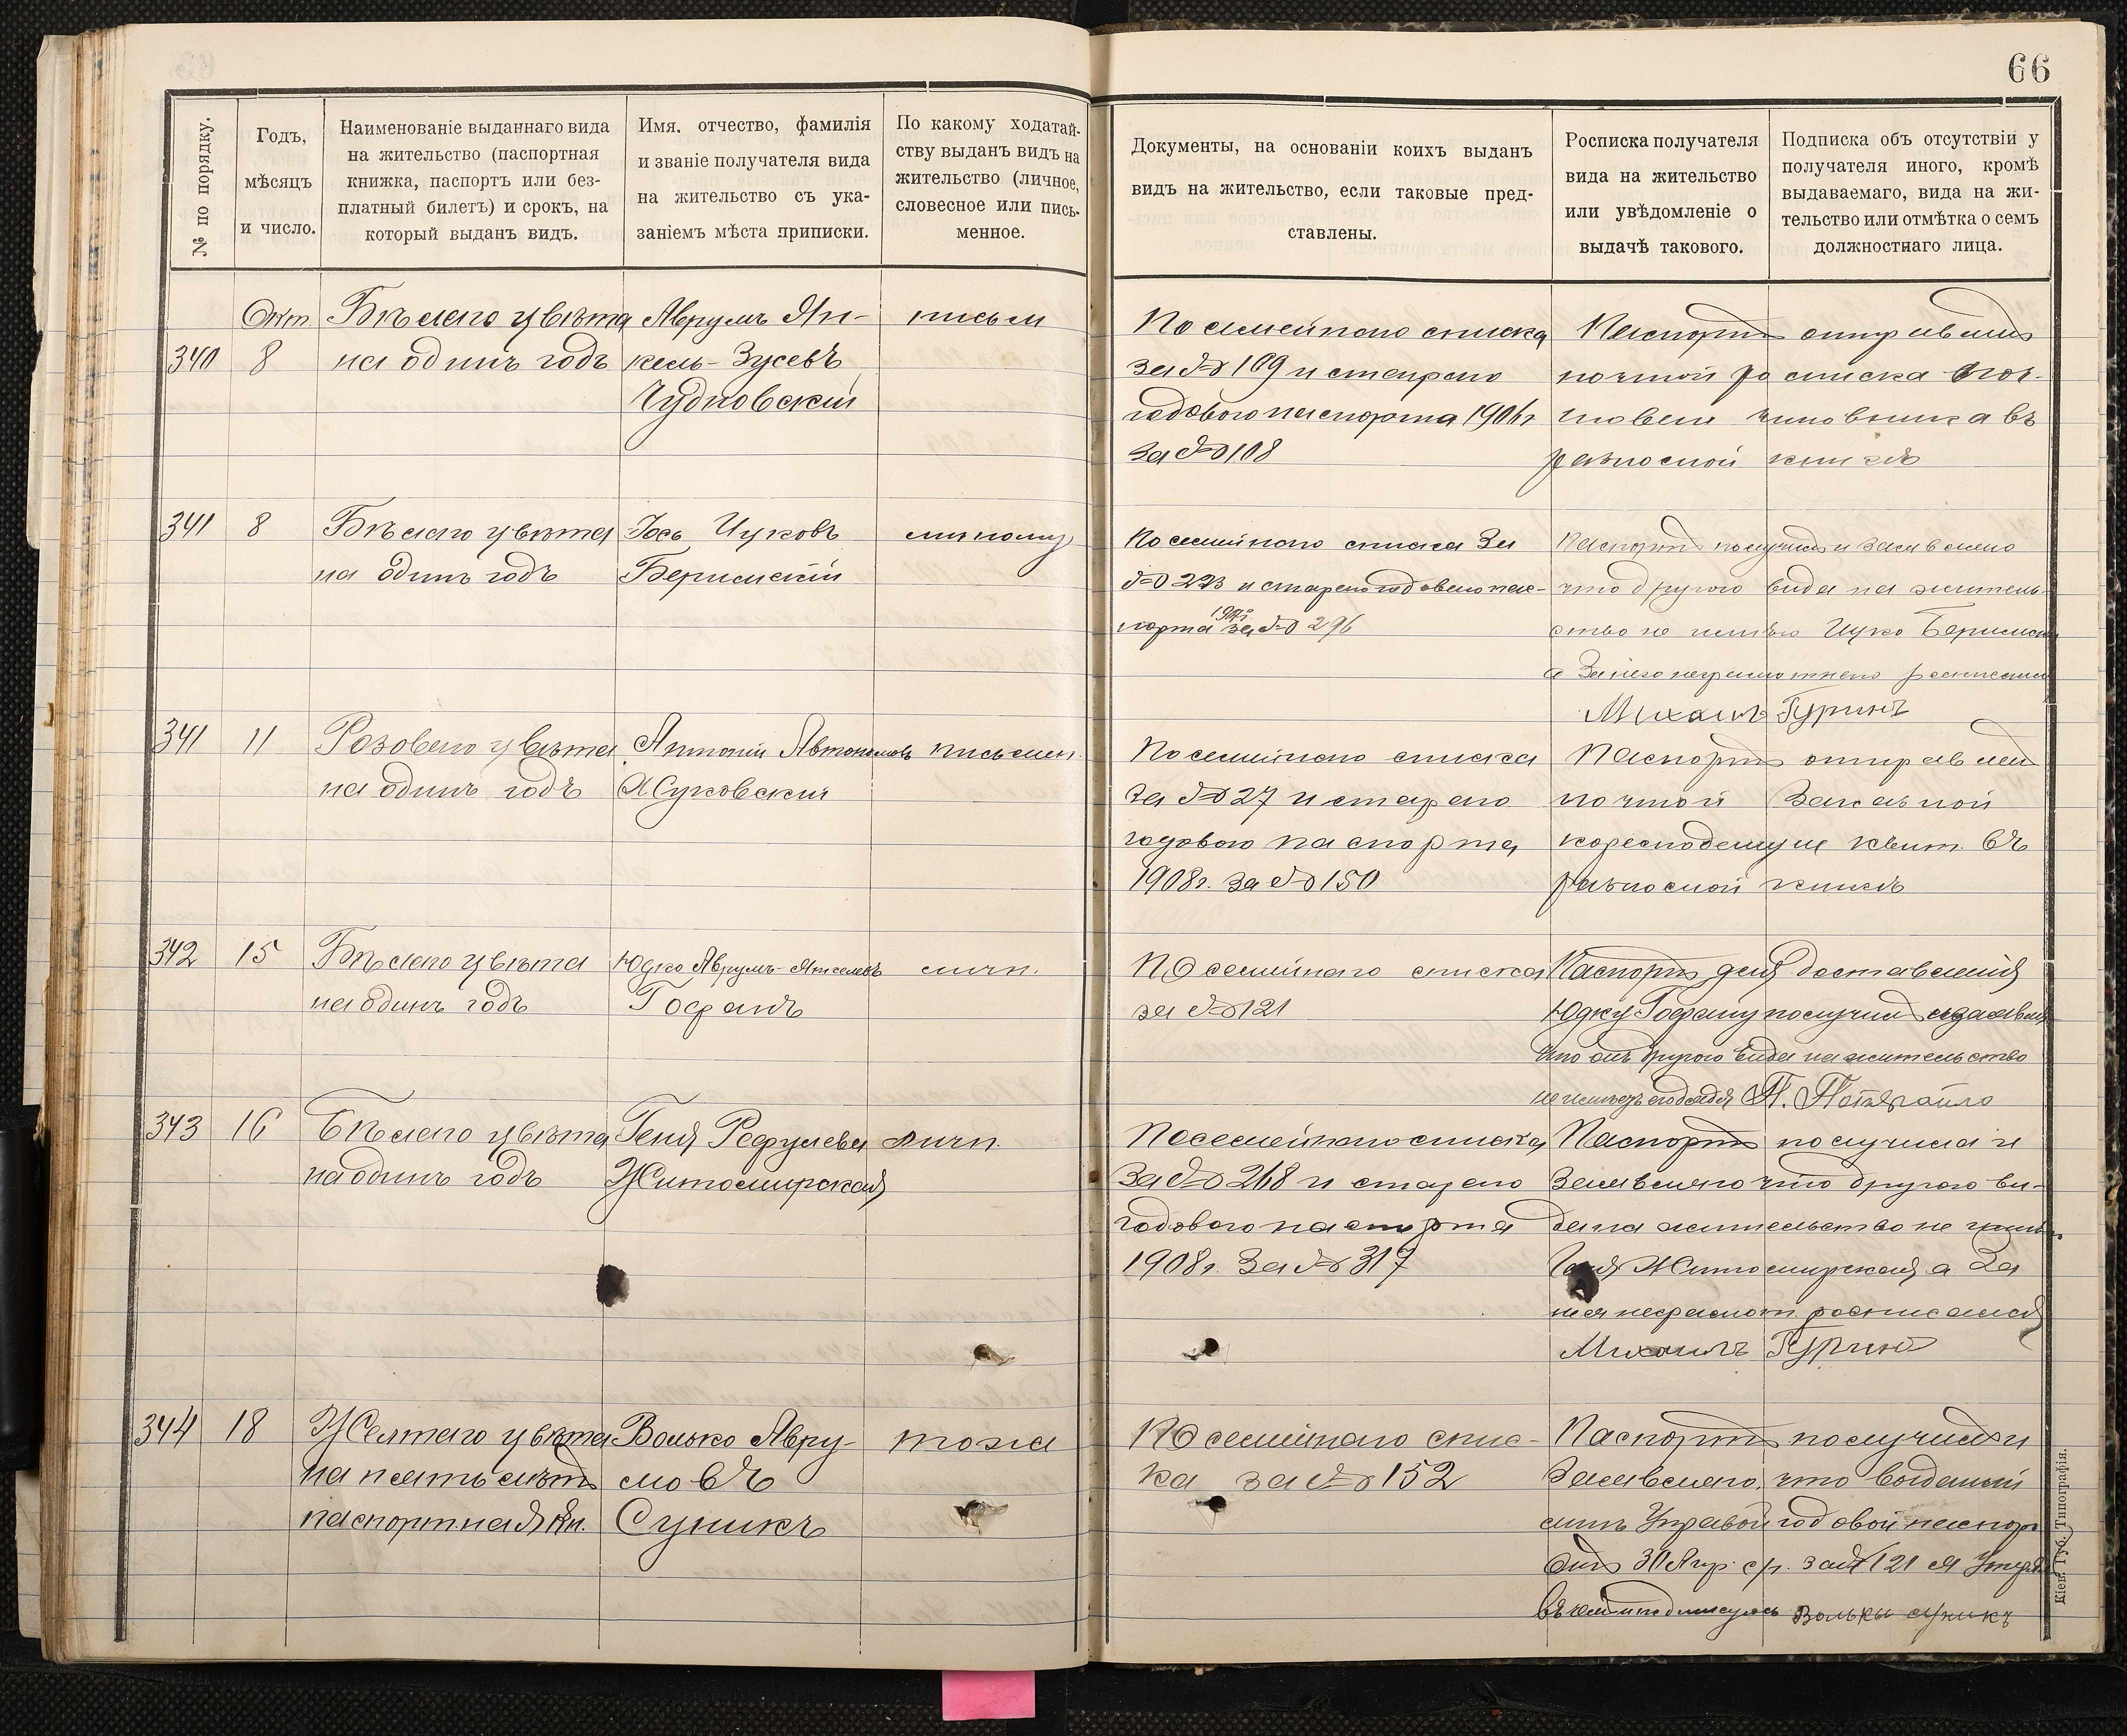 66
№ по порядку.
Годъ,
мѣсяцъ
и число.
Наименованіе выданнаго вида
на жительство (паспортная
книжка, паспортъ или без-
платный билетъ) и срокъ, на
который выданъ видъ.
Имя, отчество, фамилія
и званіе получателя вида
на жительство съ ука-
заніемъ мѣста приписки.
По какому ходатай-
ству выданъ видъ на
жительство (личное,
словесное или пись-
менное.
Документы, на основаніи коихъ выданъ
видъ на жительство, если таковые пред-
ставлены.
Росписка получателя
вида на жительство
или увѣдомленіе о
выдачѣ такового.
Подписка объ отсутствіи у
получателя иного, кромѣ
выдаваемаго, вида на жи-
тельство или отмѣтка о семъ
должностнаго лица.
340
Окт
8
Бѣлаго цвѣта
на одинъ годъ
Аврумъ Ян-
кель-Зусевъ
Чудновскій
письм
По семейнаго списка
за № 169 и стараго
годового паспорта 190 г
за № 108
Паспортъ отправленъ
почтой росписка поч-
товаго чиновника въ
разносной книгѣ
341
8
Бѣлаго цвѣта
на одинъ годъ
Іось Ицковъ
личному
По семейнаго списка за
№ 223 и стараго годоваго пас-
порта за № 296
Паспортъ получилъ и заявляю
что другого вида на житель-
ство не имѣю
а за него неграмотнаго росписался
Михаилъ Гуринъ
341
11
Розоваго цвѣта
на одинъ годъ
Антоній Автономовъ
письмен.
По семейнаго списка
за № 27 и стараго
годового паспорта
1908 г. за № 150
Паспортъ отправленъ
почтой заказной
коресподенціи квит. въ
разносной книгѣ
342
15
Бѣлаго цвѣта
на одинъ годъ
Юдко Аврумъ-Янкелевъ
личн.
По семейнаго списка
за № 121
Паспортъ для доставленія
Юдку получилъ и заявляю
что онъ другого вида на жительство
не имѣетъ
343
16
Бѣлаго цвѣта
на одинъ годъ
Геня Рефулева
Житомирская
личн.
По семейнаго списка
за № 268 и стараго
годового паспорта
1908 г. за № 317
Паспортъ получила и
заявляю что другого ви-
да на жительство не имѣю
Геня Житомирская а за
нея неграмотн. росписался
Михаилъ Гуринъ
344
18
Желтаго цвѣта
на пять лѣтъ
паспортная кн.
Волько Авру-
мовъ
Суникъ
тоже
По семейнаго спис-
ка за № 152
Паспортъ получилъ и
заявляю, что выданный
мнѣ Управой годовой паспортъ
за № 121
въ чемъ и подписуюсь Волько Суникъ
Кіев. Губ. Типографія.